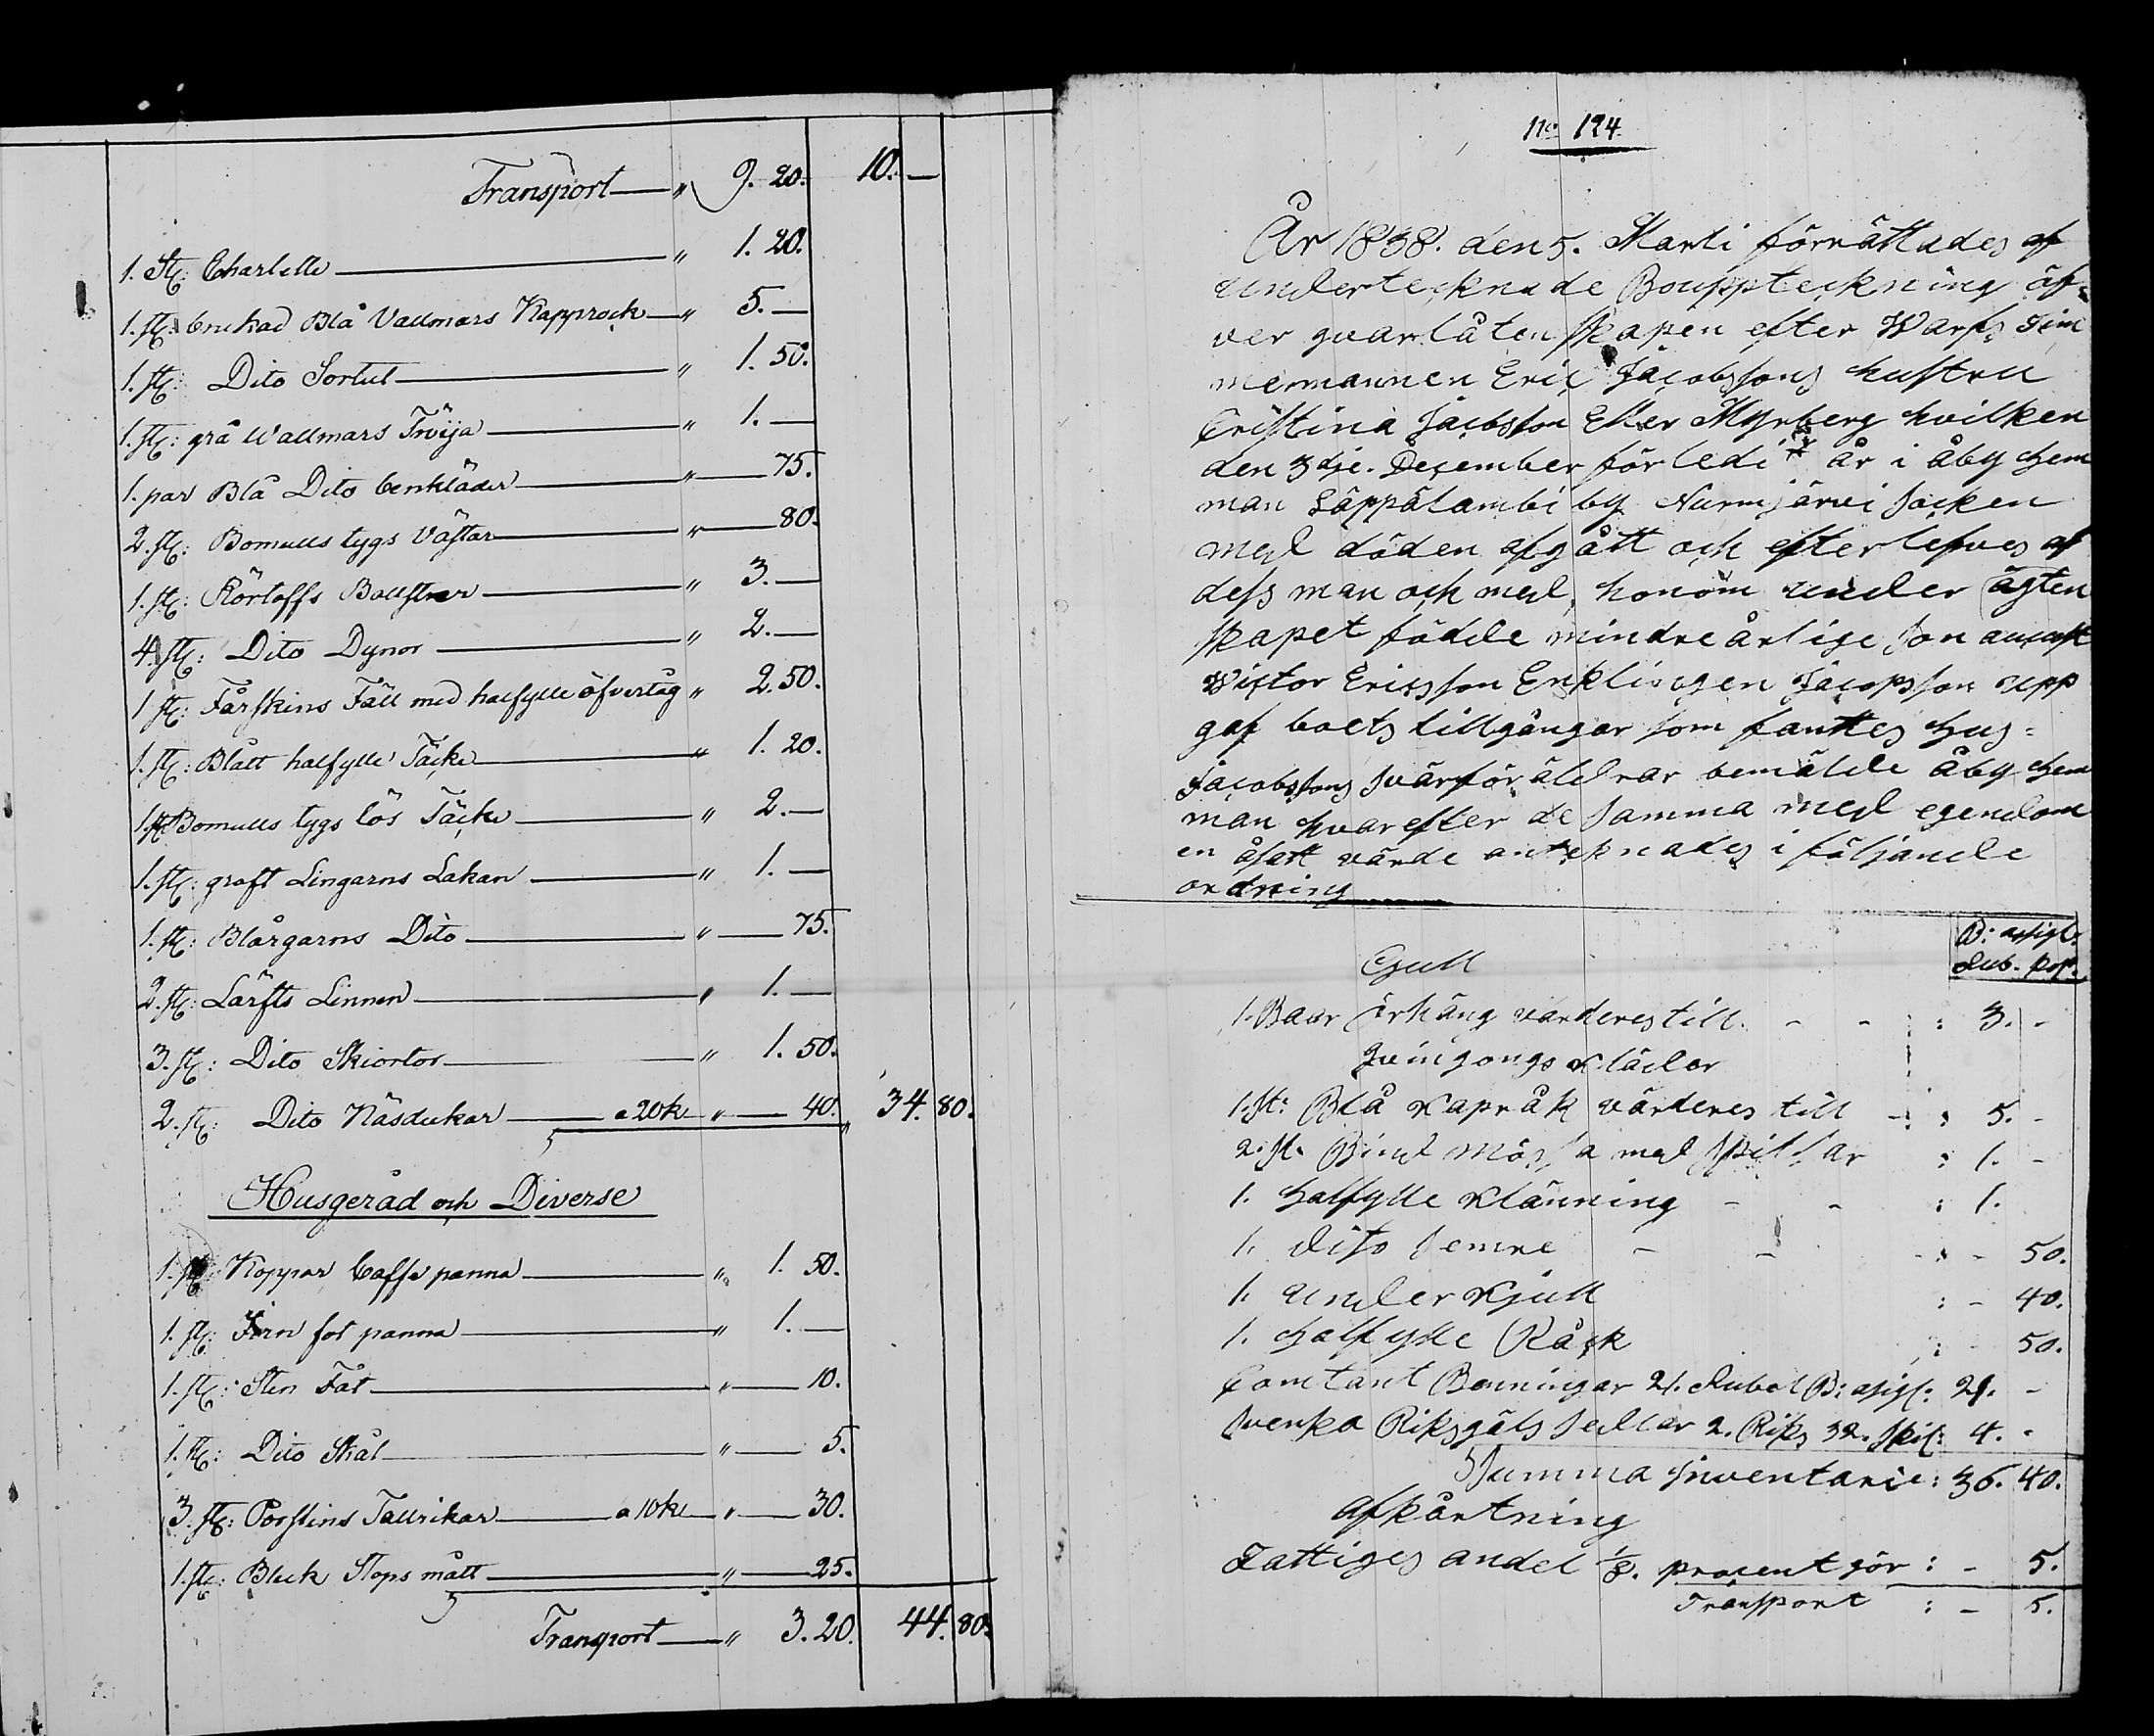 Transport — " 9. 20. 10. —
1. St: Charlelle — " 1. 20.
1. St: enkad Blå Vallmars Kapprock — " 5. —
1. St: Dito Sortut — " 1. 50.
1. St: grå Wallmars Tröija — " 1. —
1. par Blå Dito benkläder — " — 75.
2. St: Bomulls tygs Västar — " — 80.
1. St: Körtoffs Bollstrar — " 3. —
4. St: Dito Dynor — " 2. —
1 St: Fårskins Fäll med halfylle öfvertåg " 2. 50.
1. St: Blått halfylle Täcke — " 1. 20.
1. St Bomulls tygs lös Täcke — " 2. —
1. St: groft Lingarns Lakan — " 1. —
1. St: Blårgarns Dito — " — 75.
2. St: Lärfts Linnen — " 1. —
3. St: Dito Skiortor — " 1. 50.
2. St: Dito Näsdukar — a 20 k " — 40. " 34. 80.
Husgeråd och Diverse
1. St Koppar Caffe panna — " 1. 50.
1. St: Jern fot panna — " 1. —
1. St: Sten Fat — " — 10.
1. St: Dito Skål — " — 5.
3. St: Porslins Tallrikar — a 10 k " — 30.
1. St: Bleck Stops mått — " — 25.
Transport — " 3. 20. 44. 80.
No 124
År 1838. den 5. Marti förrättades af
undertecknade Bouppteckning öf-
ver qvarlåtenskapen efter Warfs Tim
mermannen Eric Jacobssons hustru
Cristina Jacobsson Eller Myrberg hvilken
den 3dje. December förledit år i åby hem
man Läppälambi by Nurmjärvi Socken
med döden afgått och efterlefves af
dess man och med honom under ägten
skapet födde mindreårlige Son august
Wictor Ericsson Enklingen Jacopsson upp
gaf boets tillgångar som fanttes hus=
Jacobssons Svärföräldrar bemälde åby hem
man hvarefter de samma med egendom
en åsatt värde antecknades i följande
ordning
B: assigt:
Rub. kop.
Gull
1. Baar örhäng varderes till. - - : 3. -
Gvingongs Kläder
1. St: Blå Kapråk värderes till - : 5. -
2. St. Bind mössa med Spitsar : 1. -
1. halfylle Klänning - - : 1.
1. Dito semre - - - : - 50.
1. Under Kjull : - 40.
1. halfylle Råck : - 50.
Contant Penningar 21. Rubel B: asigt: 21. -
Svenska Riksgäls Sedlar 2. Riks 32. Skil: 4. -
Summa Inventarie: 36. 40.
afkårtning
Fattiges andel 1/8. procent gör : - 5.
Transport : - 5.